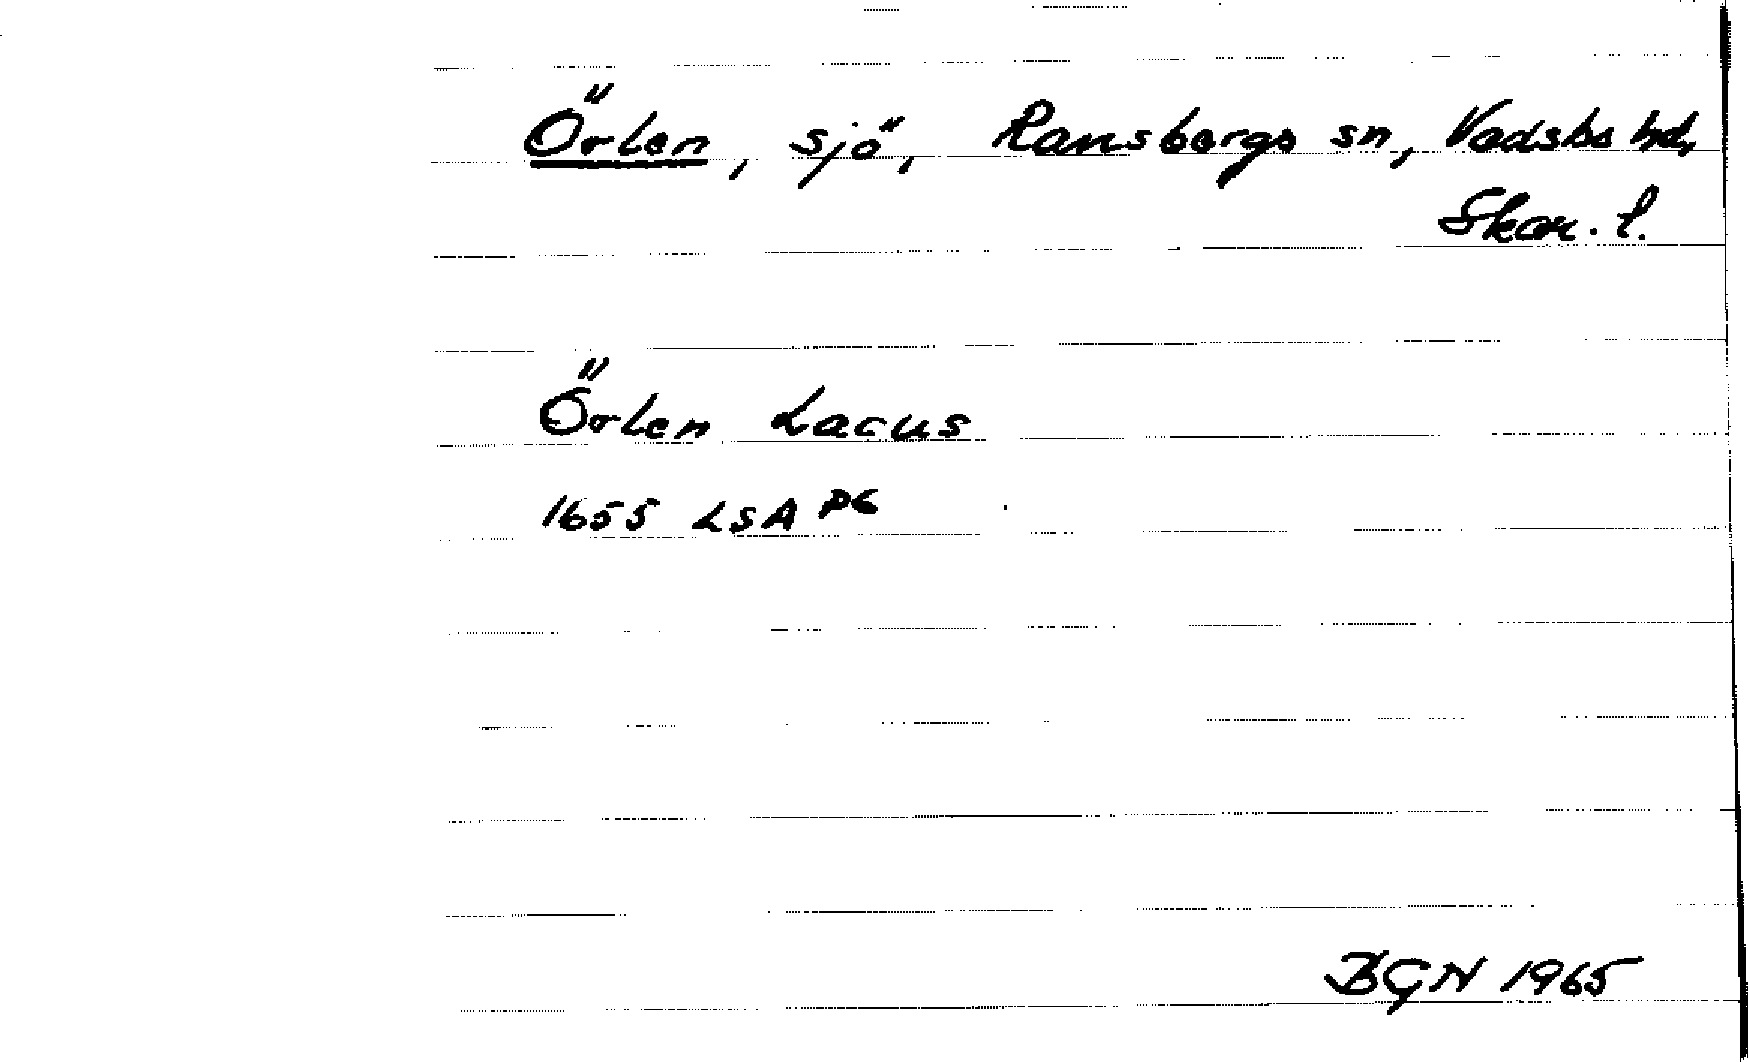 Örlen, sjö, Ransbergs sn, Vadsbo hd,
Skar. l.
Örlen Lacus
1655 LSA P6
BGN 1965